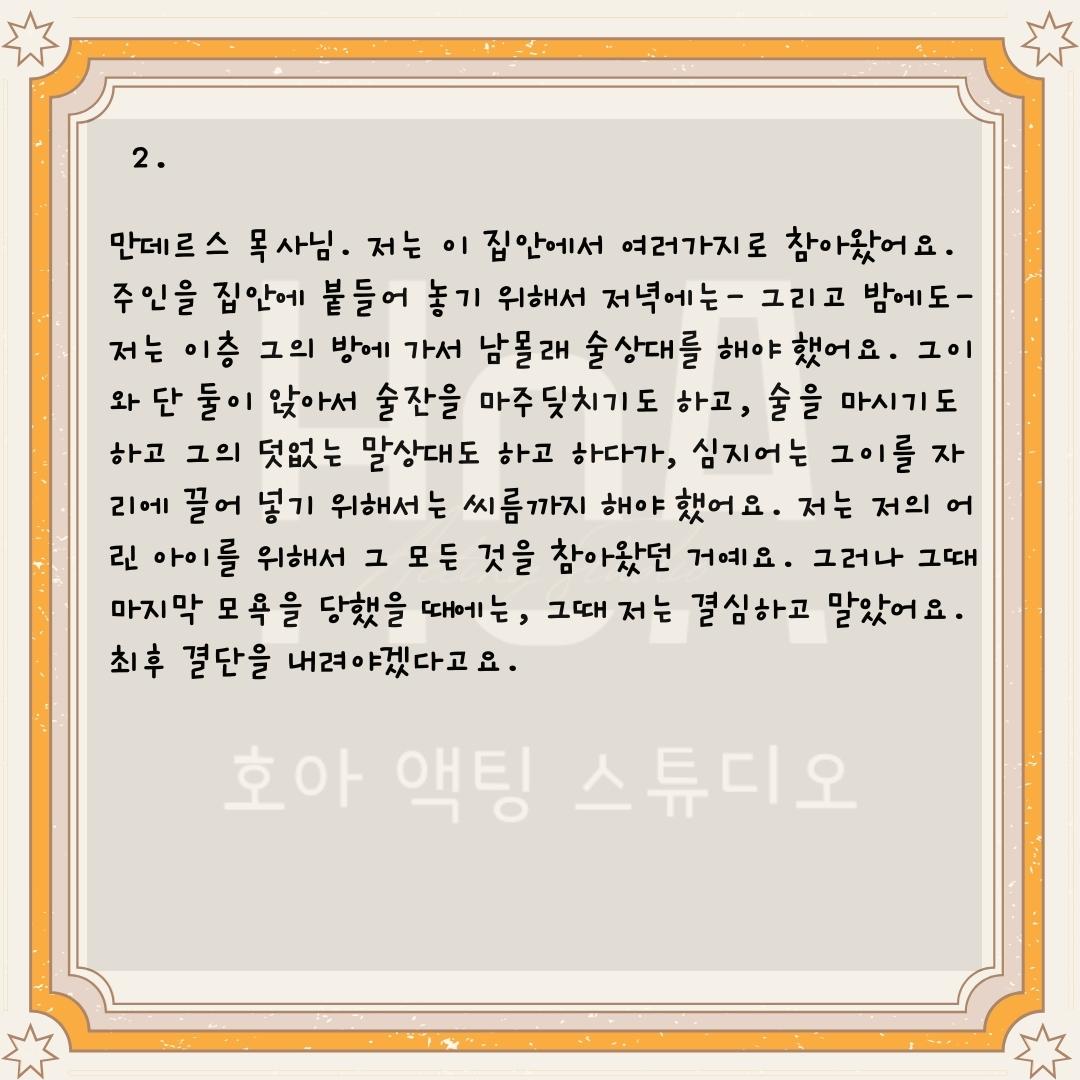 2.
만데르스 목사님. 저는 이 집안에서 여러가지로 참아왔어요.
주인을 집안에 붙들어 놓기 위해서 저녁에는- 그리고 밤에도-
저는 이층 그의 방에 가서 남몰래 술상대를 해야 했어요. 그이
와 단 둘이 앉아서 술잔을 마주딪치기도 하고, 술을 마시기도
하고 그의 덧없는 말상대도 하고 하다가, 심지어는 그이를 자
리에 끌어 넣기 위해서는 씨름까지 해야 했어요. 저는 저의 어
린 아이를 위해서 그 모든 것을 참아왔던 거예요. 그러나 그때
마지막 모욕을 당했을 때에는, 그때 저는 결심하고 말았어요.
최후 결단을 내려야겠다고요.
HoA
Acting Studio
호아 액팅 스튜디오